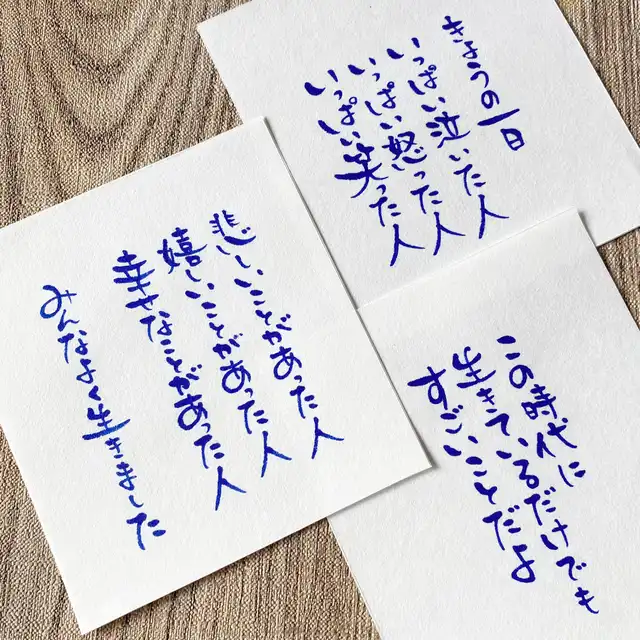 きょうの一日
いっぱい泣いた人
いっぱい怒った人
いっぱい笑った人
悲しいことがあった人
嬉しいことがあった人
幸せなことがあった人
みんなよく生きました
この時代に
生きているだけでも
すごいことだよ